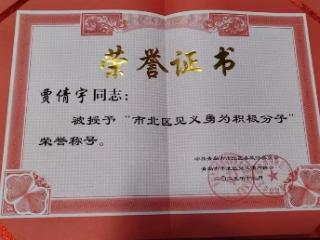 荣誉证书
贾倩宇同志：
被授予“市北区见义勇为积极分子”
荣誉称号。